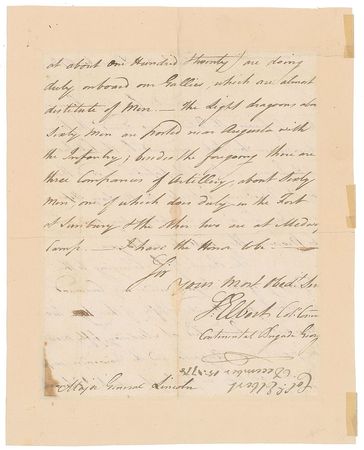 at about One Hundred & twenty) are doing
duty onboard our Gallies, which are almost
destitute of Men — the Light dragoons abo
Sixty Men are posted near Augusta with
the Infantry; besides the foregoing there are
three Companies of Artillery, about Sixty
Men, one of which does Duty in the Fort
at Sunbury & the other two are at Medway
Camp. — I have the Honor to be —
Sir
Your Most Obedt. Ser
S Elbert Col. Comm
Continental Brigade Geor
Col. Elbert
December
Major General Lincoln